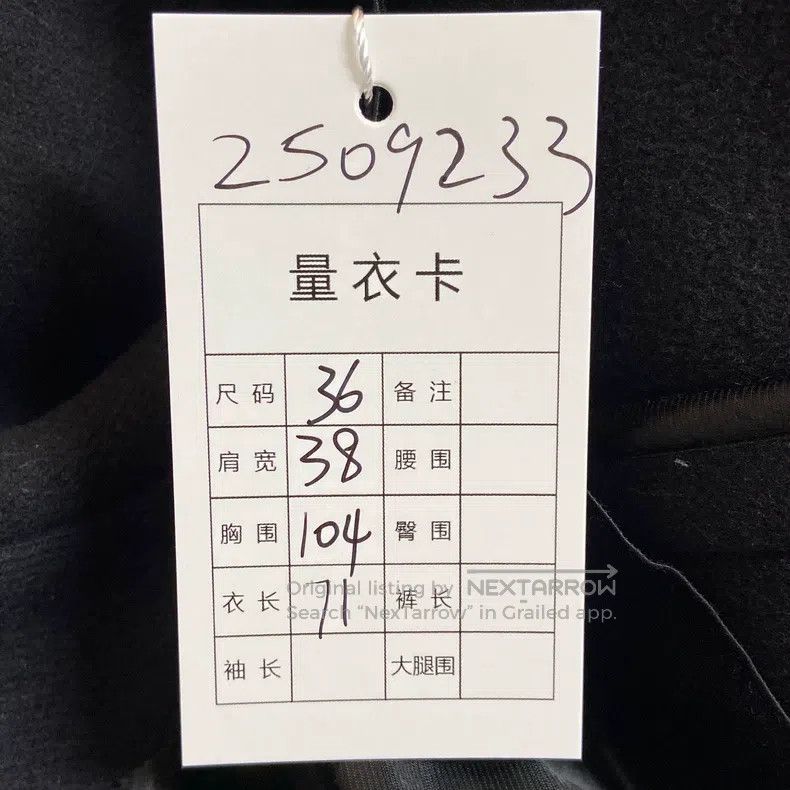 2509233
量衣卡
尺码 36 备注
肩宽 38 腰围
胸围 104 臀围
衣长 71 裤长
袖长 大腿围
Original listing by NEXTARROW
Search “NexTarrow” in Grailed app.